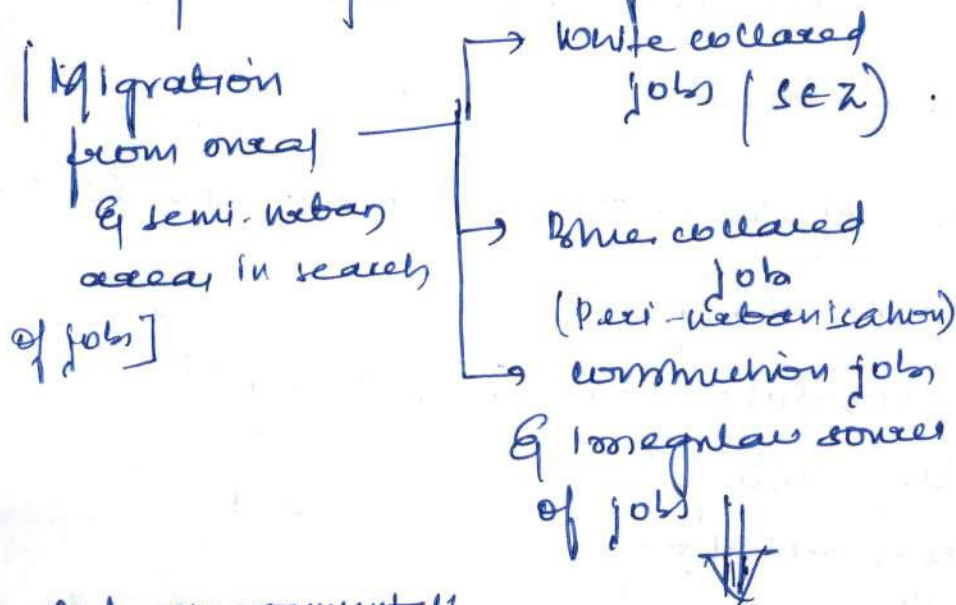 [Migration
from rural
& semi-urban
areas in search
of jobs]
White collared
jobs (SEZ).
Blue collared
job
(Peri-urbanisation)
construction jobs
& Irregular sources
of jobs